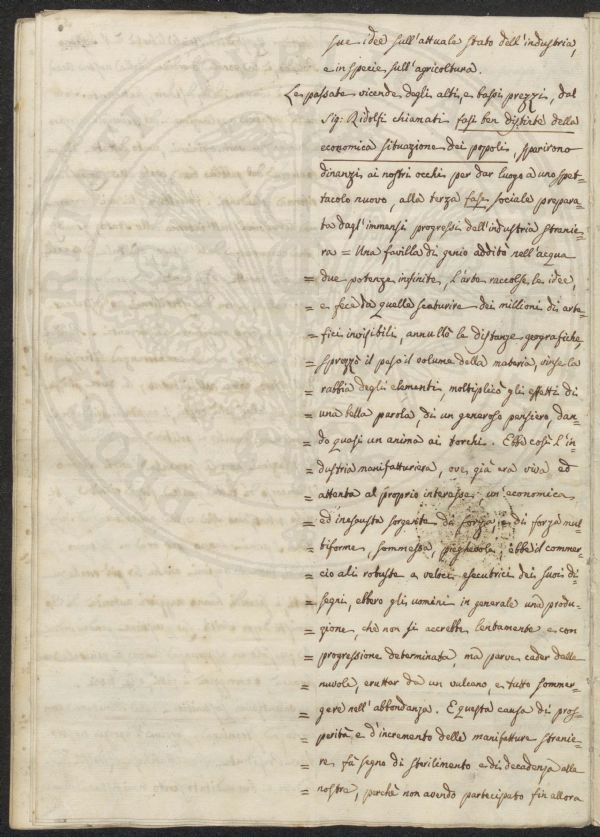 sue idee sull'attuale stato dell'industria,
e in specie sull'agricoltura.
Le passate vicende degli alti, e bassi prezzi, dal
Sig: Ridolfi chiamati fasi ben distinte della
economica situazione dei popoli, sparirono
dinanzi ai nostri occhi per dar luogo a uno spet=
tacolo nuovo, alla terza fase sociale prepara=
ta dagl'immensi progressi dell'industria stranie=
ra = Una favilla di genio additò nell'acqua
= due potenze infinite, l'arte raccolse le idee,
= e fece da quelle scaturire dei millioni di arte=
= fici invisibili, annullò le distanze geografiche,
= sprezzò il peso il volume della materia, vinse la
= rabbia degli elementi, moltiplicò gli effetti di
= una bella parola, di un generoso pensiero, dan=
= do quasi un anima ai torchi. Ebbe così l'in=
= dustria manifatturiera, ove già era viva, ed
= attenta al proprio interesse, un'economica,
= ed inesausta sorgente di forza, e di forza mul=
= tiforme, sommessa, pieghevole; ebbe il commer=
= cio ali robuste e veloci esecutrici dei suoi di=
= segni, ebbero gli uomini in generale una produ=
= zione, che non si accrebbe lentamente e con
= progressione determinata, ma parve cader dalle
= nuvole, eruttar da un vulcano, e tutto sommer=
= gere nell'abbondanza. E questa causa di pros=
= perità e d'incremento delle manifatture stranie=
= re fà segno di sterilimento e di decadenza alle
= nostre, perchè non avendo partecipato fin allora